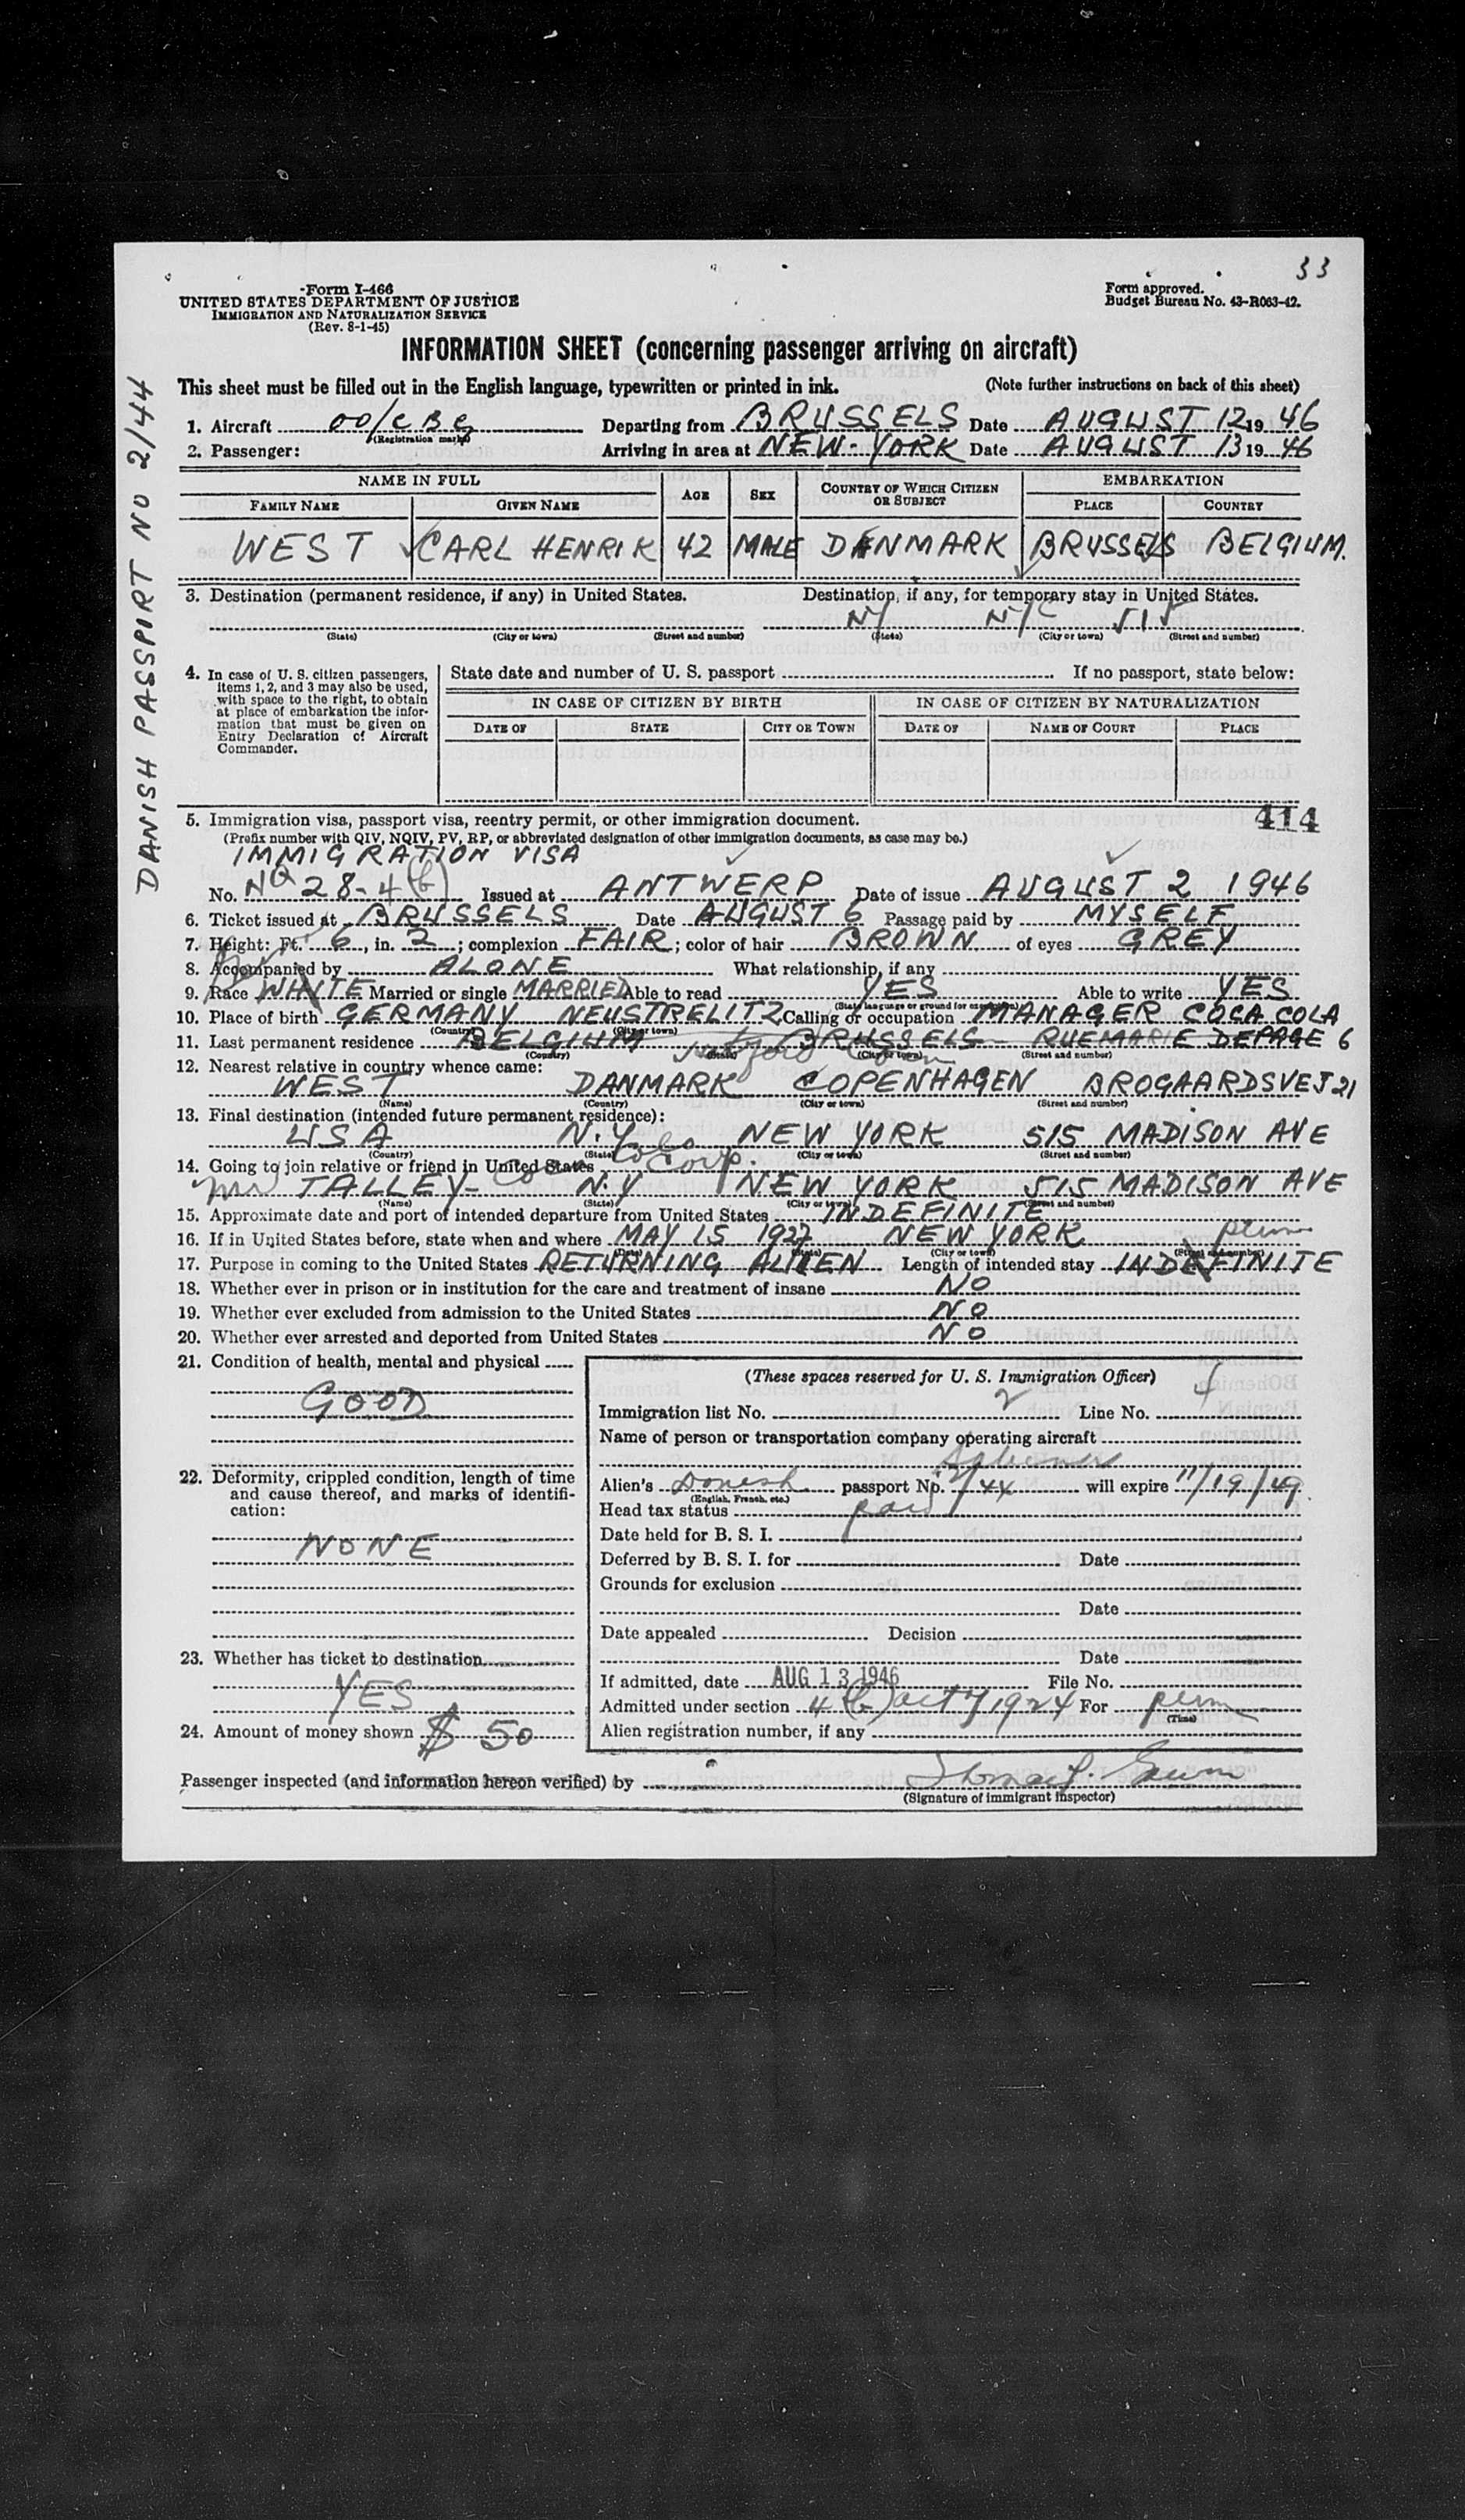 33
Form I-466
UNITED STATES DEPARTMENT OF JUSTICE
IMMIGRATION AND NATURALIZATION SERVICE
(Rev. 8-1-45)
Form approved.
Budget Bureau No. 43-R063-42.
INFORMATION SHEET (concerning passenger arriving on aircraft)
This sheet must be filled out in the English language, typewritten or printed in ink. (Note further instructions on back of this sheet)
DANISH PASSPORT NO 2/44
1. Aircraft OO/CBG (Registration marks) Departing from BRUSSELS Date AUGUST 12 1946
2. Passenger: Arriving in area at NEW-YORK Date AUGUST 13 1946
NAME IN FULL AGE SEX COUNTRY OF WHICH CITIZEN OR SUBJECT EMBARKATION
FAMILY NAME GIVEN NAME PLACE COUNTRY
WEST CARL HENRIK 42 MALE DANMARK BRUSSELS BELGIUM.
3. Destination (permanent residence, if any) in United States. Destination, if any, for temporary stay in United States.
NY NYC 515
(State) (City or town) (Street and number) (State) (City or town) (Street and number)
4. In case of U. S. citizen passengers, items 1, 2, and 3 may also be used, with space to the right, to obtain at place of embarkation the information that must be given on Entry Declaration of Aircraft Commander.
State date and number of U. S. passport If no passport, state below:
IN CASE OF CITIZEN BY BIRTH IN CASE OF CITIZEN BY NATURALIZATION
DATE OF STATE CITY OR TOWN DATE OF NAME OF COURT PLACE
414
5. Immigration visa, passport visa, reentry permit, or other immigration document.
(Prefix number with QIV, NQIV, PV, RP, or abbreviated designation of other immigration documents, as case may be.)
IMMIGRATION VISA
No. NQ 28-4(b) Issued at ANTWERP Date of issue AUGUST 2 1946
6. Ticket issued at BRUSSELS Date AUGUST 6 Passage paid by MYSELF
7. Height: Ft. 6, in. 2; complexion FAIR; color of hair BROWN of eyes GREY
8. Accompanied by ALONE What relationship, if any
9. Race WHITE Married or single MARRIED Able to read YES Able to write YES
(State language or ground for exemption)
10. Place of birth GERMANY NEUSTRELITZ Calling or occupation MANAGER COCA COLA
(Country) (City or town)
11. Last permanent residence BELGIUM BRUSSELS RUE MARIE DEPAGE 6
(Country) (State) (City or town) (Street and number)
12. Nearest relative in country whence came:
WEST DANMARK COPENHAGEN BROGAARDSVEJ 21
(Name) (Country) (City or town) (Street and number)
13. Final destination (intended future permanent residence):
USA N.Y NEW YORK 515 MADISON AVE
(Country) (State) (City or town) (Street and number)
14. Going to join relative or friend in United States Coca Cola Corp.
Mr TALLEY- N.Y NEW YORK 515 MADISON AVE
(Name) (State) (City or town) (Street and number)
15. Approximate date and port of intended departure from United States INDEFINITE
16. If in United States before, state when and where MAY 15 1927 NEW YORK
(Date) (State) (City or town) (Street and number)
perm
17. Purpose in coming to the United States RETURNING ALIEN Length of intended stay INDEFINITE
18. Whether ever in prison or in institution for the care and treatment of insane NO
19. Whether ever excluded from admission to the United States NO
20. Whether ever arrested and deported from United States NO
21. Condition of health, mental and physical
GOOD
22. Deformity, crippled condition, length of time and cause thereof, and marks of identification:
NONE
23. Whether has ticket to destination
YES
24. Amount of money shown $ 50
(These spaces reserved for U. S. Immigration Officer)
Immigration list No. 2 Line No. 4
Name of person or transportation company operating aircraft
Sabena
Alien's Danish passport No. 2/44 will expire 11/19/49
(English, French, etc.)
Head tax status paid
Date held for B. S. I.
Deferred by B. S. I. for Date
Grounds for exclusion
Date
Date appealed Decision
Date
If admitted, date AUG 13 1946 File No.
Admitted under section 4(b) act of 1924 For perm
(Time)
Alien registration number, if any
Passenger inspected (and information hereon verified) by
(Signature of immigrant inspector)